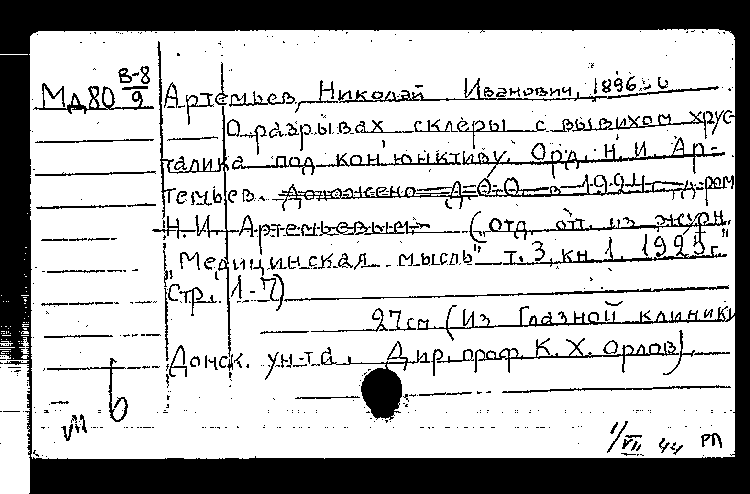 Мд80 В-8/9 Артемьев, Николай Иванович, 1896
О разрывах склеры с вывихом хрус-
талика под кон'юнктиву. Орд. Н. И. Ар-
темьев. Доложено Д.О.О. в 1924 г. д-ром
Н. И. Артемьевым (отд. отт. из журн.
"Медицинская мысль" т. 3, кн. 1. 1925 г."
Стр. 1-7)
27см (Из Глазной клиники
Донск. ун-та. Дир. проф. К. Х. Орлов).
1/VII 44 РП